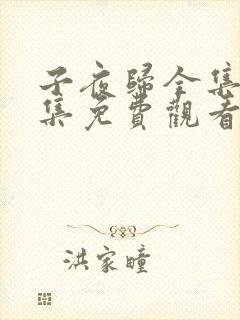 子夜歸全集
集免費觀看
洪家瞳